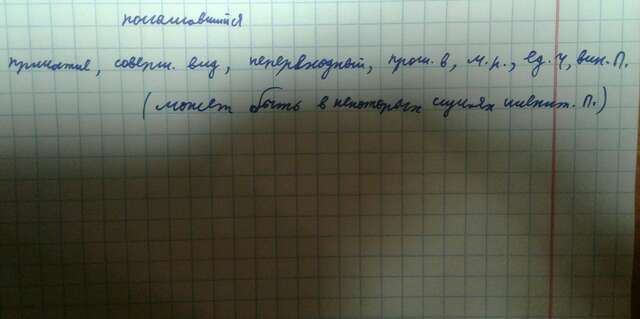 причастие, соверш. вид, непереходный, прош. в, м.р., ед. ч, вин. П.
(может быть в некоторых случаях именит. П.)